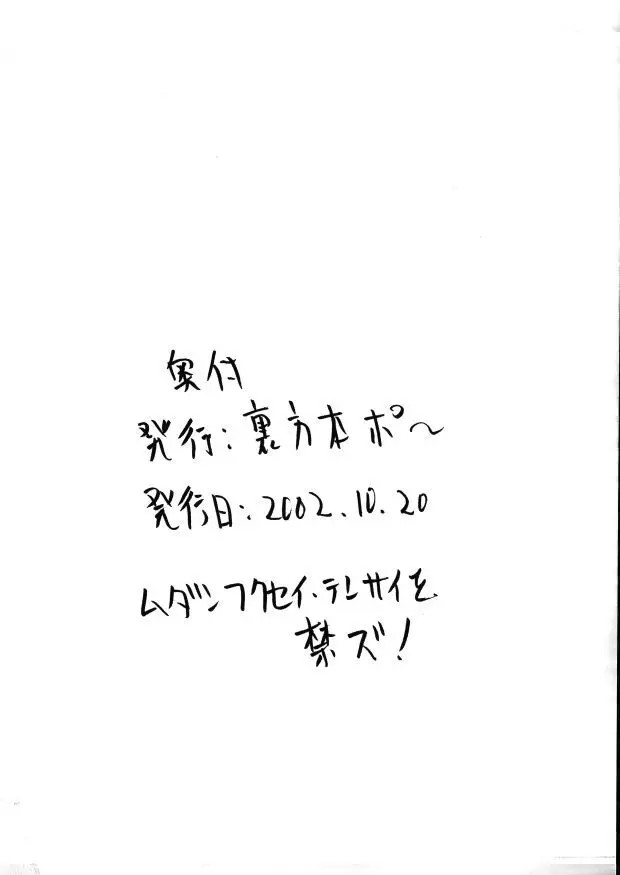 奥付
発行：裏方本ポ〜
発行日：2002.10.20
ムダンフクセイ・テンサイを
禁ズ！